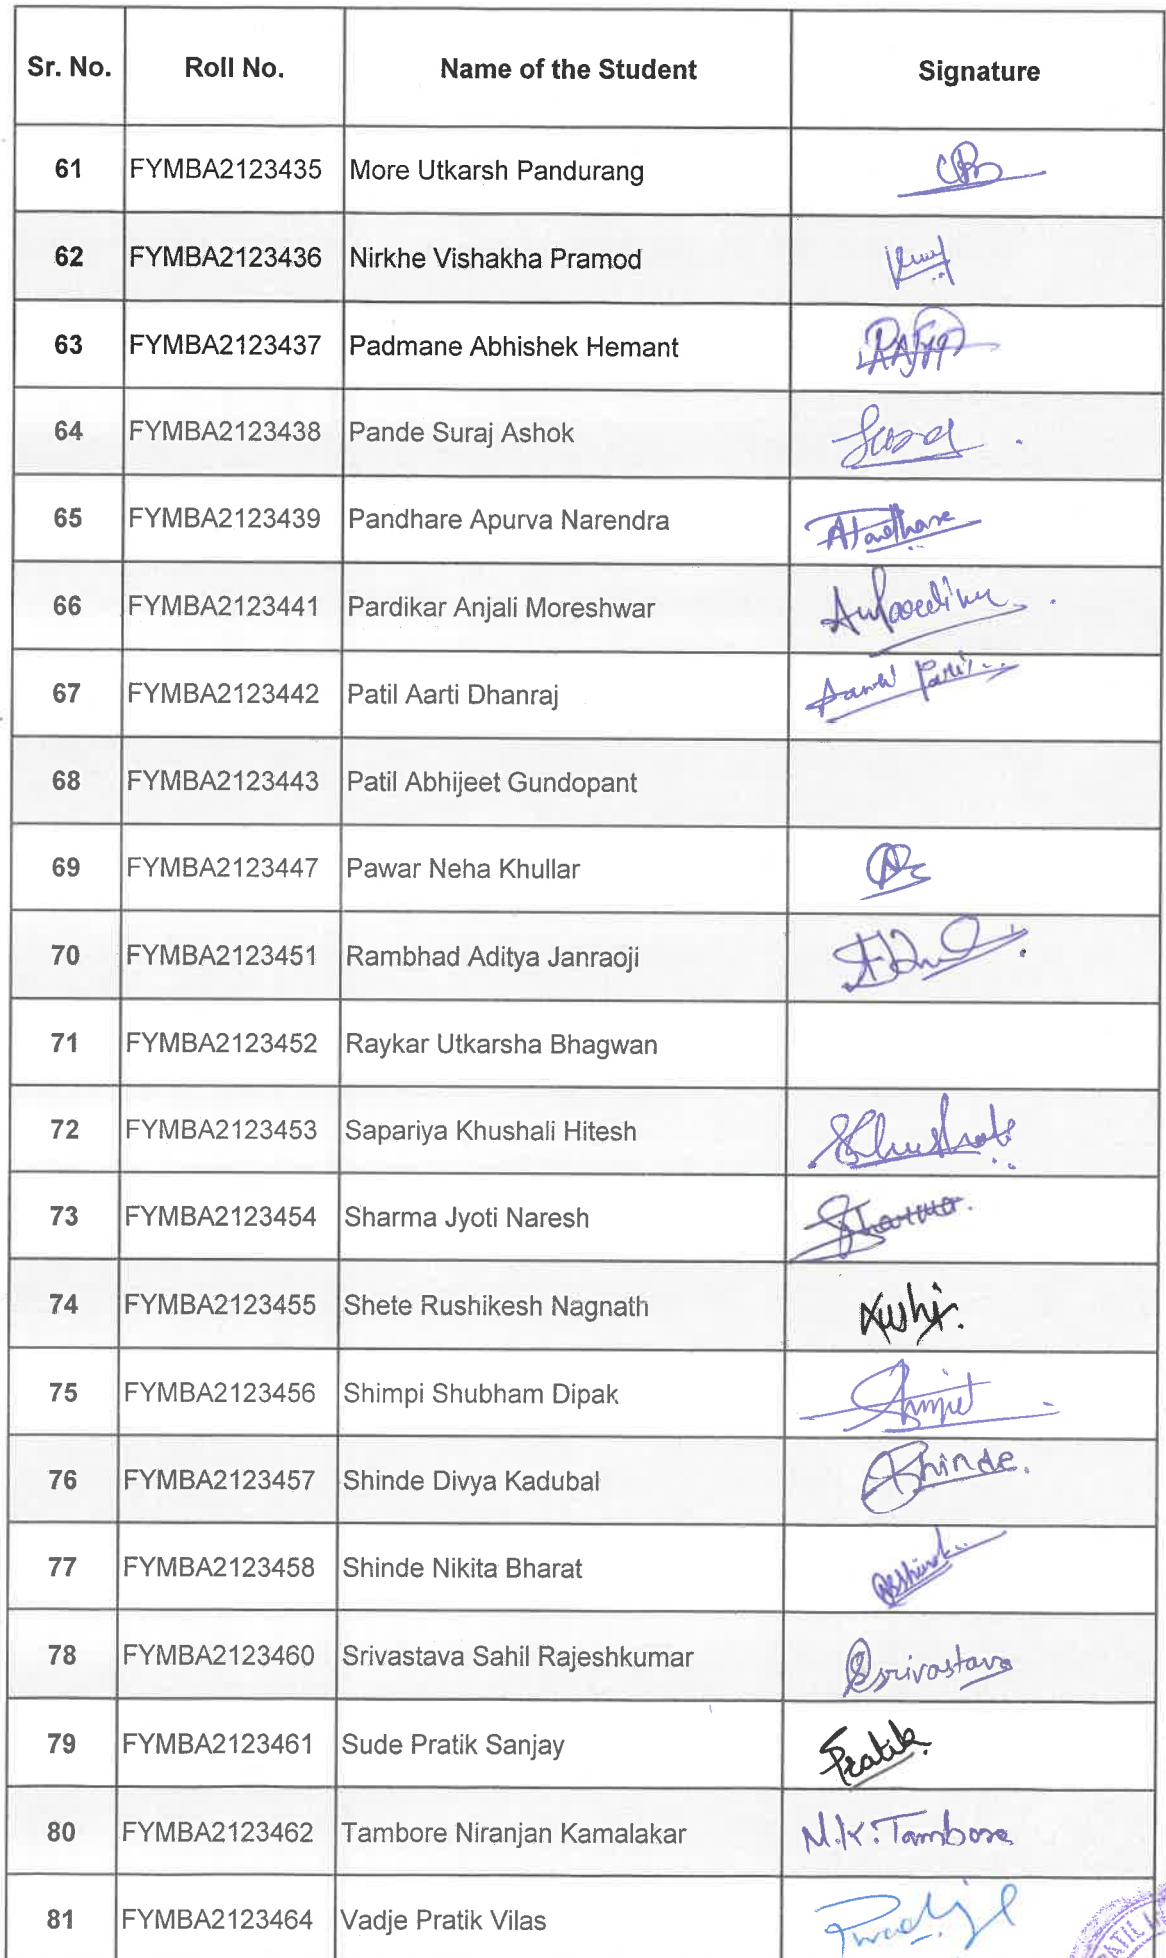 Sr. No. Roll No. Name of the Student Signature
61 FYMBA2123435 More Utkarsh Pandurang
62 FYMBA2123436 Nirkhe Vishakha Pramod
63 FYMBA2123437 Padmane Abhishek Hemant
64 FYMBA2123438 Pande Suraj Ashok
65 FYMBA2123439 Pandhare Apurva Narendra
66 FYMBA2123441 Pardikar Anjali Moreshwar
67 FYMBA2123442 Patil Aarti Dhanraj
68 FYMBA2123443 Patil Abhijeet Gundopant
69 FYMBA2123447 Pawar Neha Khullar
70 FYMBA2123451 Rambhad Aditya Janraoji
71 FYMBA2123452 Raykar Utkarsha Bhagwan
72 FYMBA2123453 Sapariya Khushali Hitesh
73 FYMBA2123454 Sharma Jyoti Naresh Sharma.
74 FYMBA2123455 Shete Rushikesh Nagnath Rushi.
75 FYMBA2123456 Shimpi Shubham Dipak
76 FYMBA2123457 Shinde Divya Kadubal Shinde.
77 FYMBA2123458 Shinde Nikita Bharat
78 FYMBA2123460 Srivastava Sahil Rajeshkumar Srivastava
79 FYMBA2123461 Sude Pratik Sanjay Pratik.
80 FYMBA2123462 Tambore Niranjan Kamalakar N.K. Tambore
81 FYMBA2123464 Vadje Pratik Vilas